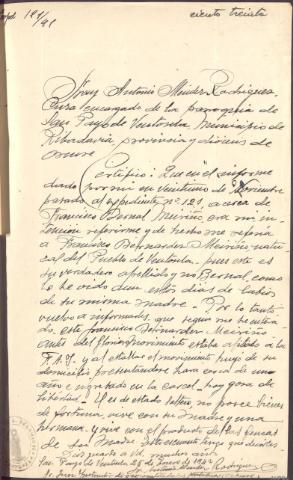 ciento treinta
Antonio Méndez Rodríguez,
Cura encargado de la parroquia de
San Payo de Ventosela, Municipio de
Ribadavia, provincia y diócesis de
Orense
Certifico: Que en el informe
dado por mi en veintiuno de
pasado al expediente nº 121, acerca de
Francisco Bernal Meiriño, era mi in-
tención referirme y de hecho me refería
a Francisco Bernardez Meiriño natu-
ral del Pueblo de Ventosela, pues este es
su verdadero apellido y no Bernal, como
lo he oido en estos dias de labios
de su misma madre. Por lo tanto
vuelvo a informar, que según me
este Francisco Bernardez Meiriño
antes del Glorioso movimiento estaba afiliado a la
F.A.I. y al estallar el movimiento huyó de su
domicilio presentandose hara cerca de un
año e ingresado en la carcel, hoy goza de
libertad. Es de estado soltero no posee bienes
de fortuna, vive con su madre y una
hermana, y vive con el producto del
de su Madre
Dios guarde a Vd. muchos años
San Payo de Ventosela 25 de Enero de
Antonio Méndez Rodríguez